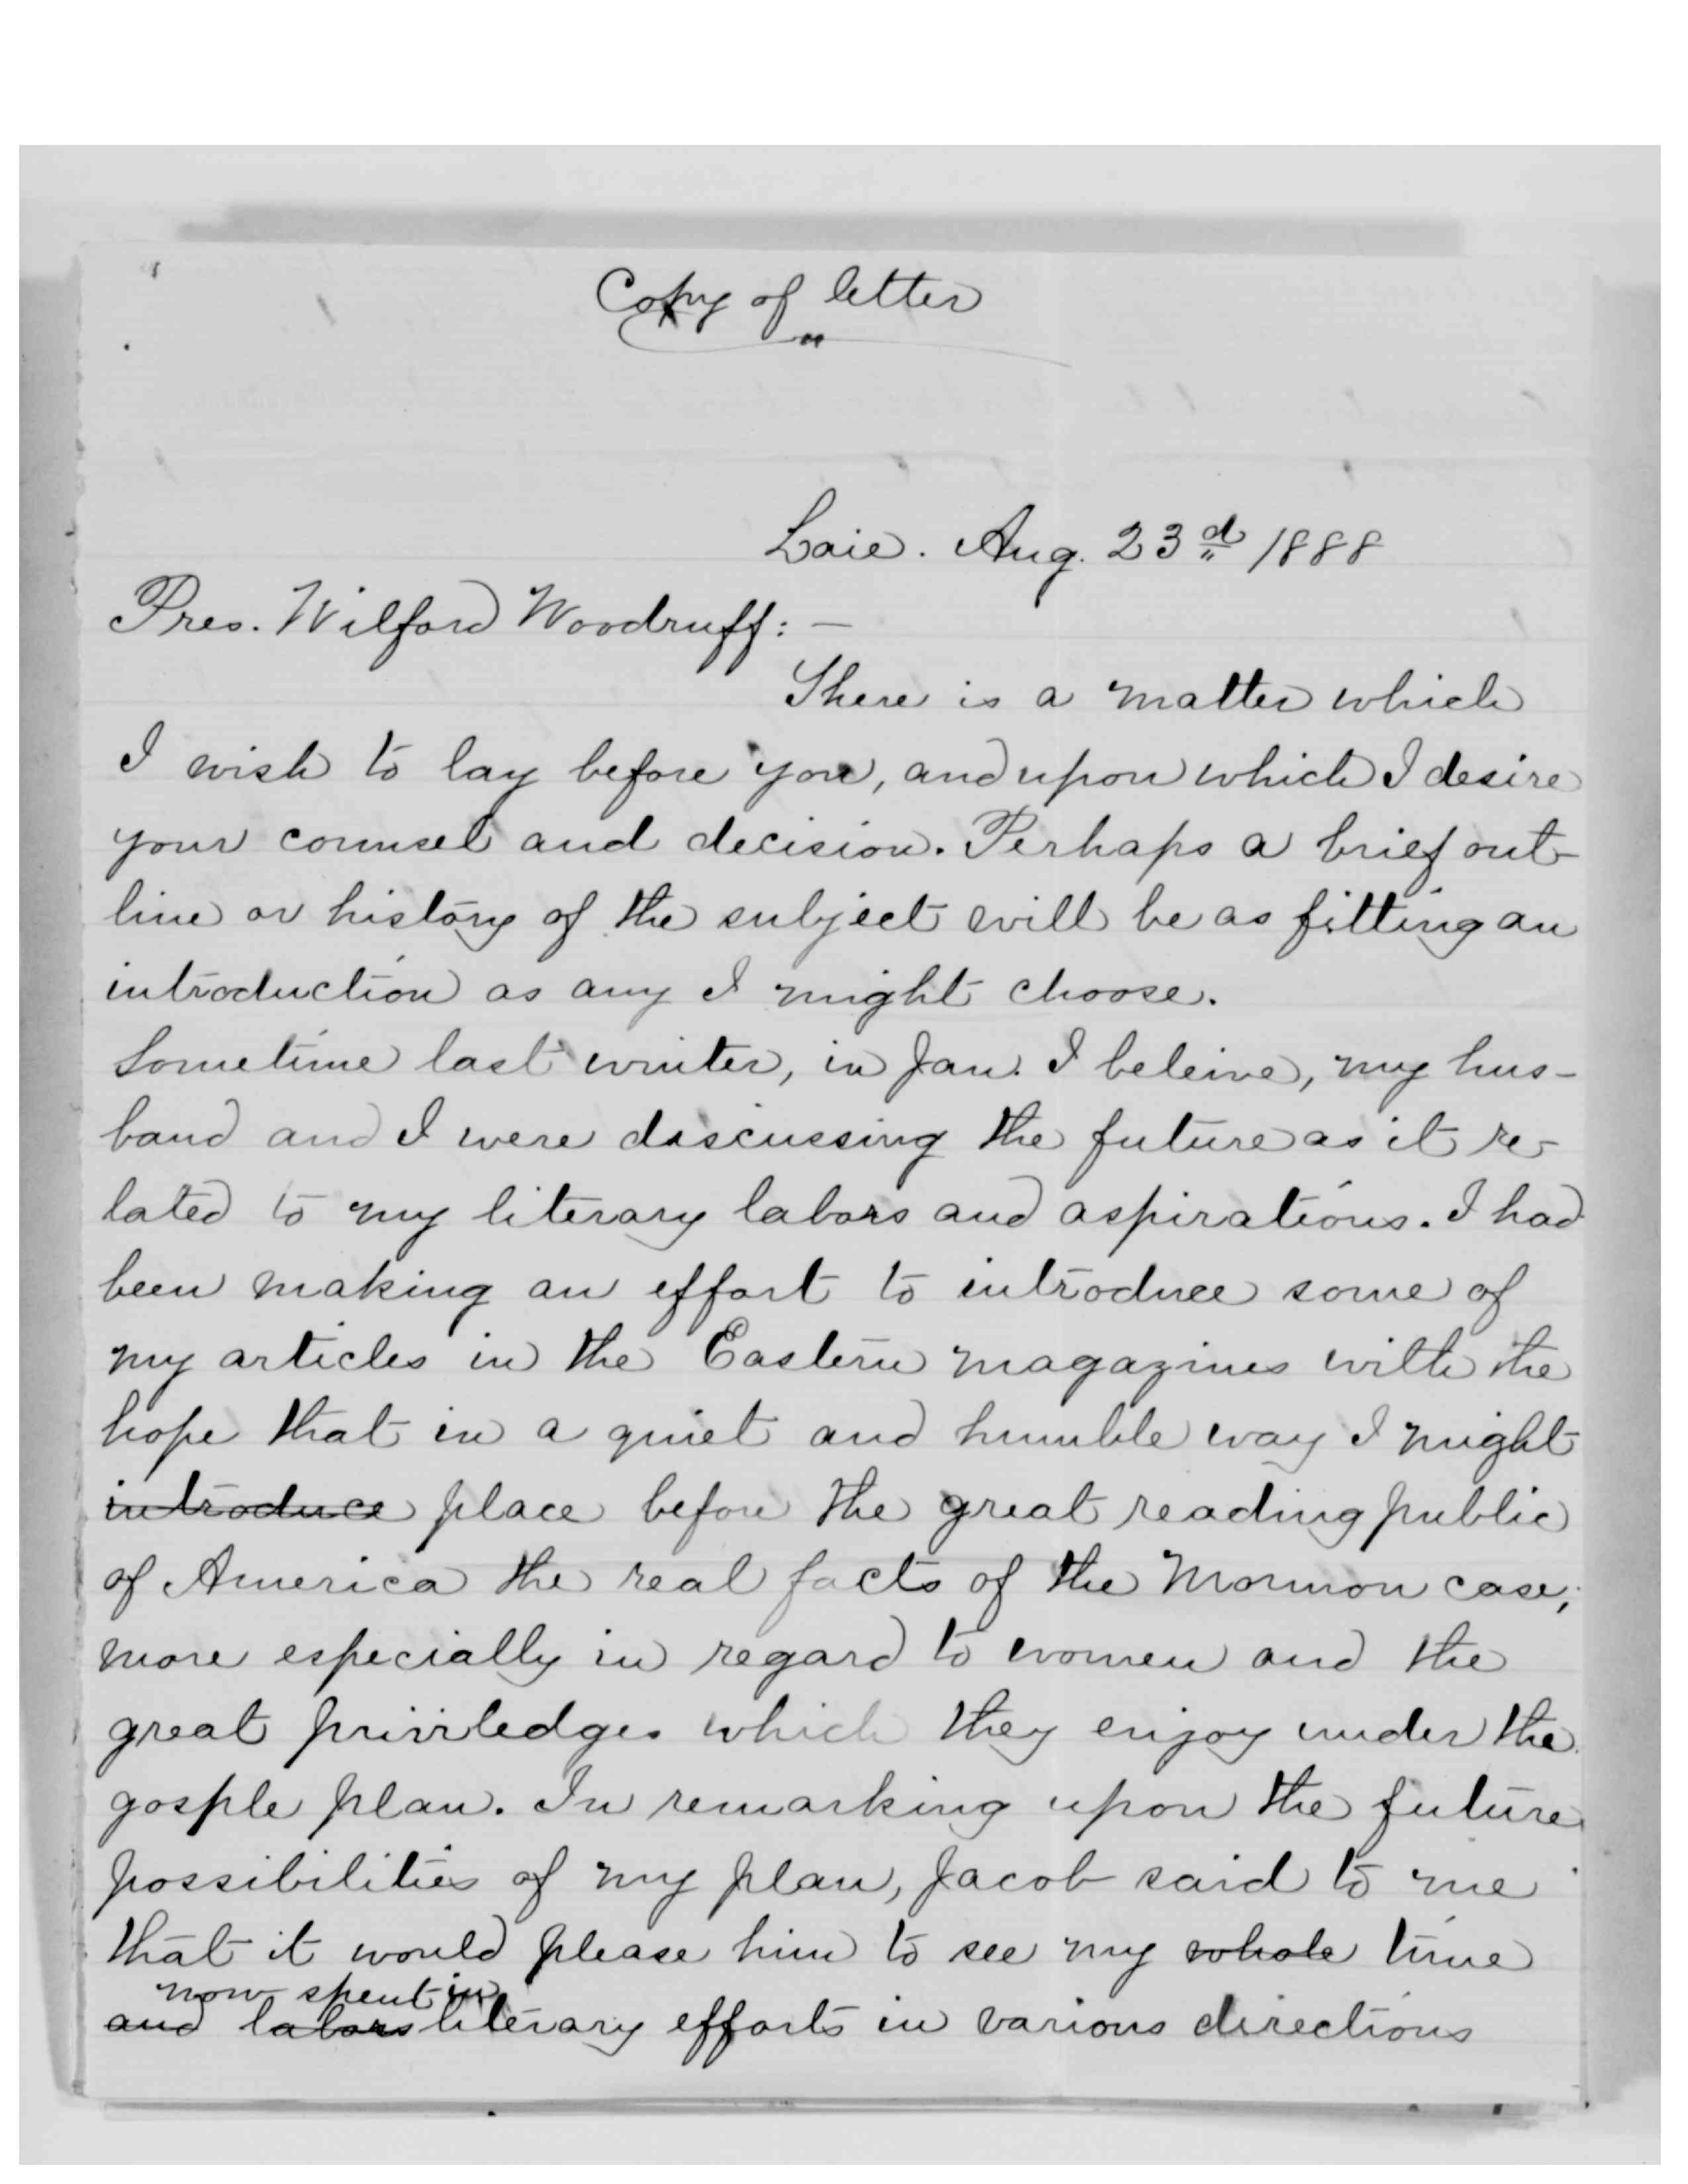 Copy of letter
"
Laie. Aug. 23d 1888
Pres. Wilford Woodruff: —
There is a matter which
I wish to lay before you, and upon which I desire
your counsel and decision. Perhaps a brief out-
line or history of the subject will be as fitting an
introduction as any I might choose.
Sometime last winter, in Jan. I beleive, my hus-
band and I were discussing the future as it re-
lated to my literary labors and aspirations. I had
been making an effort to introduce some of
my articles in the Eastern magazines with the
hope that in a quiet and humble way I might
introduce place before the great reading public
of America the real facts of the Mormon case;
more especially in regard to women and the
great priviledges which they enjoy under the
gosple plan. In remarking upon the future
possibilities of my plan, Jacob said to me
that it would please him to see my whole time
now spent in
and labors literary efforts in various directions